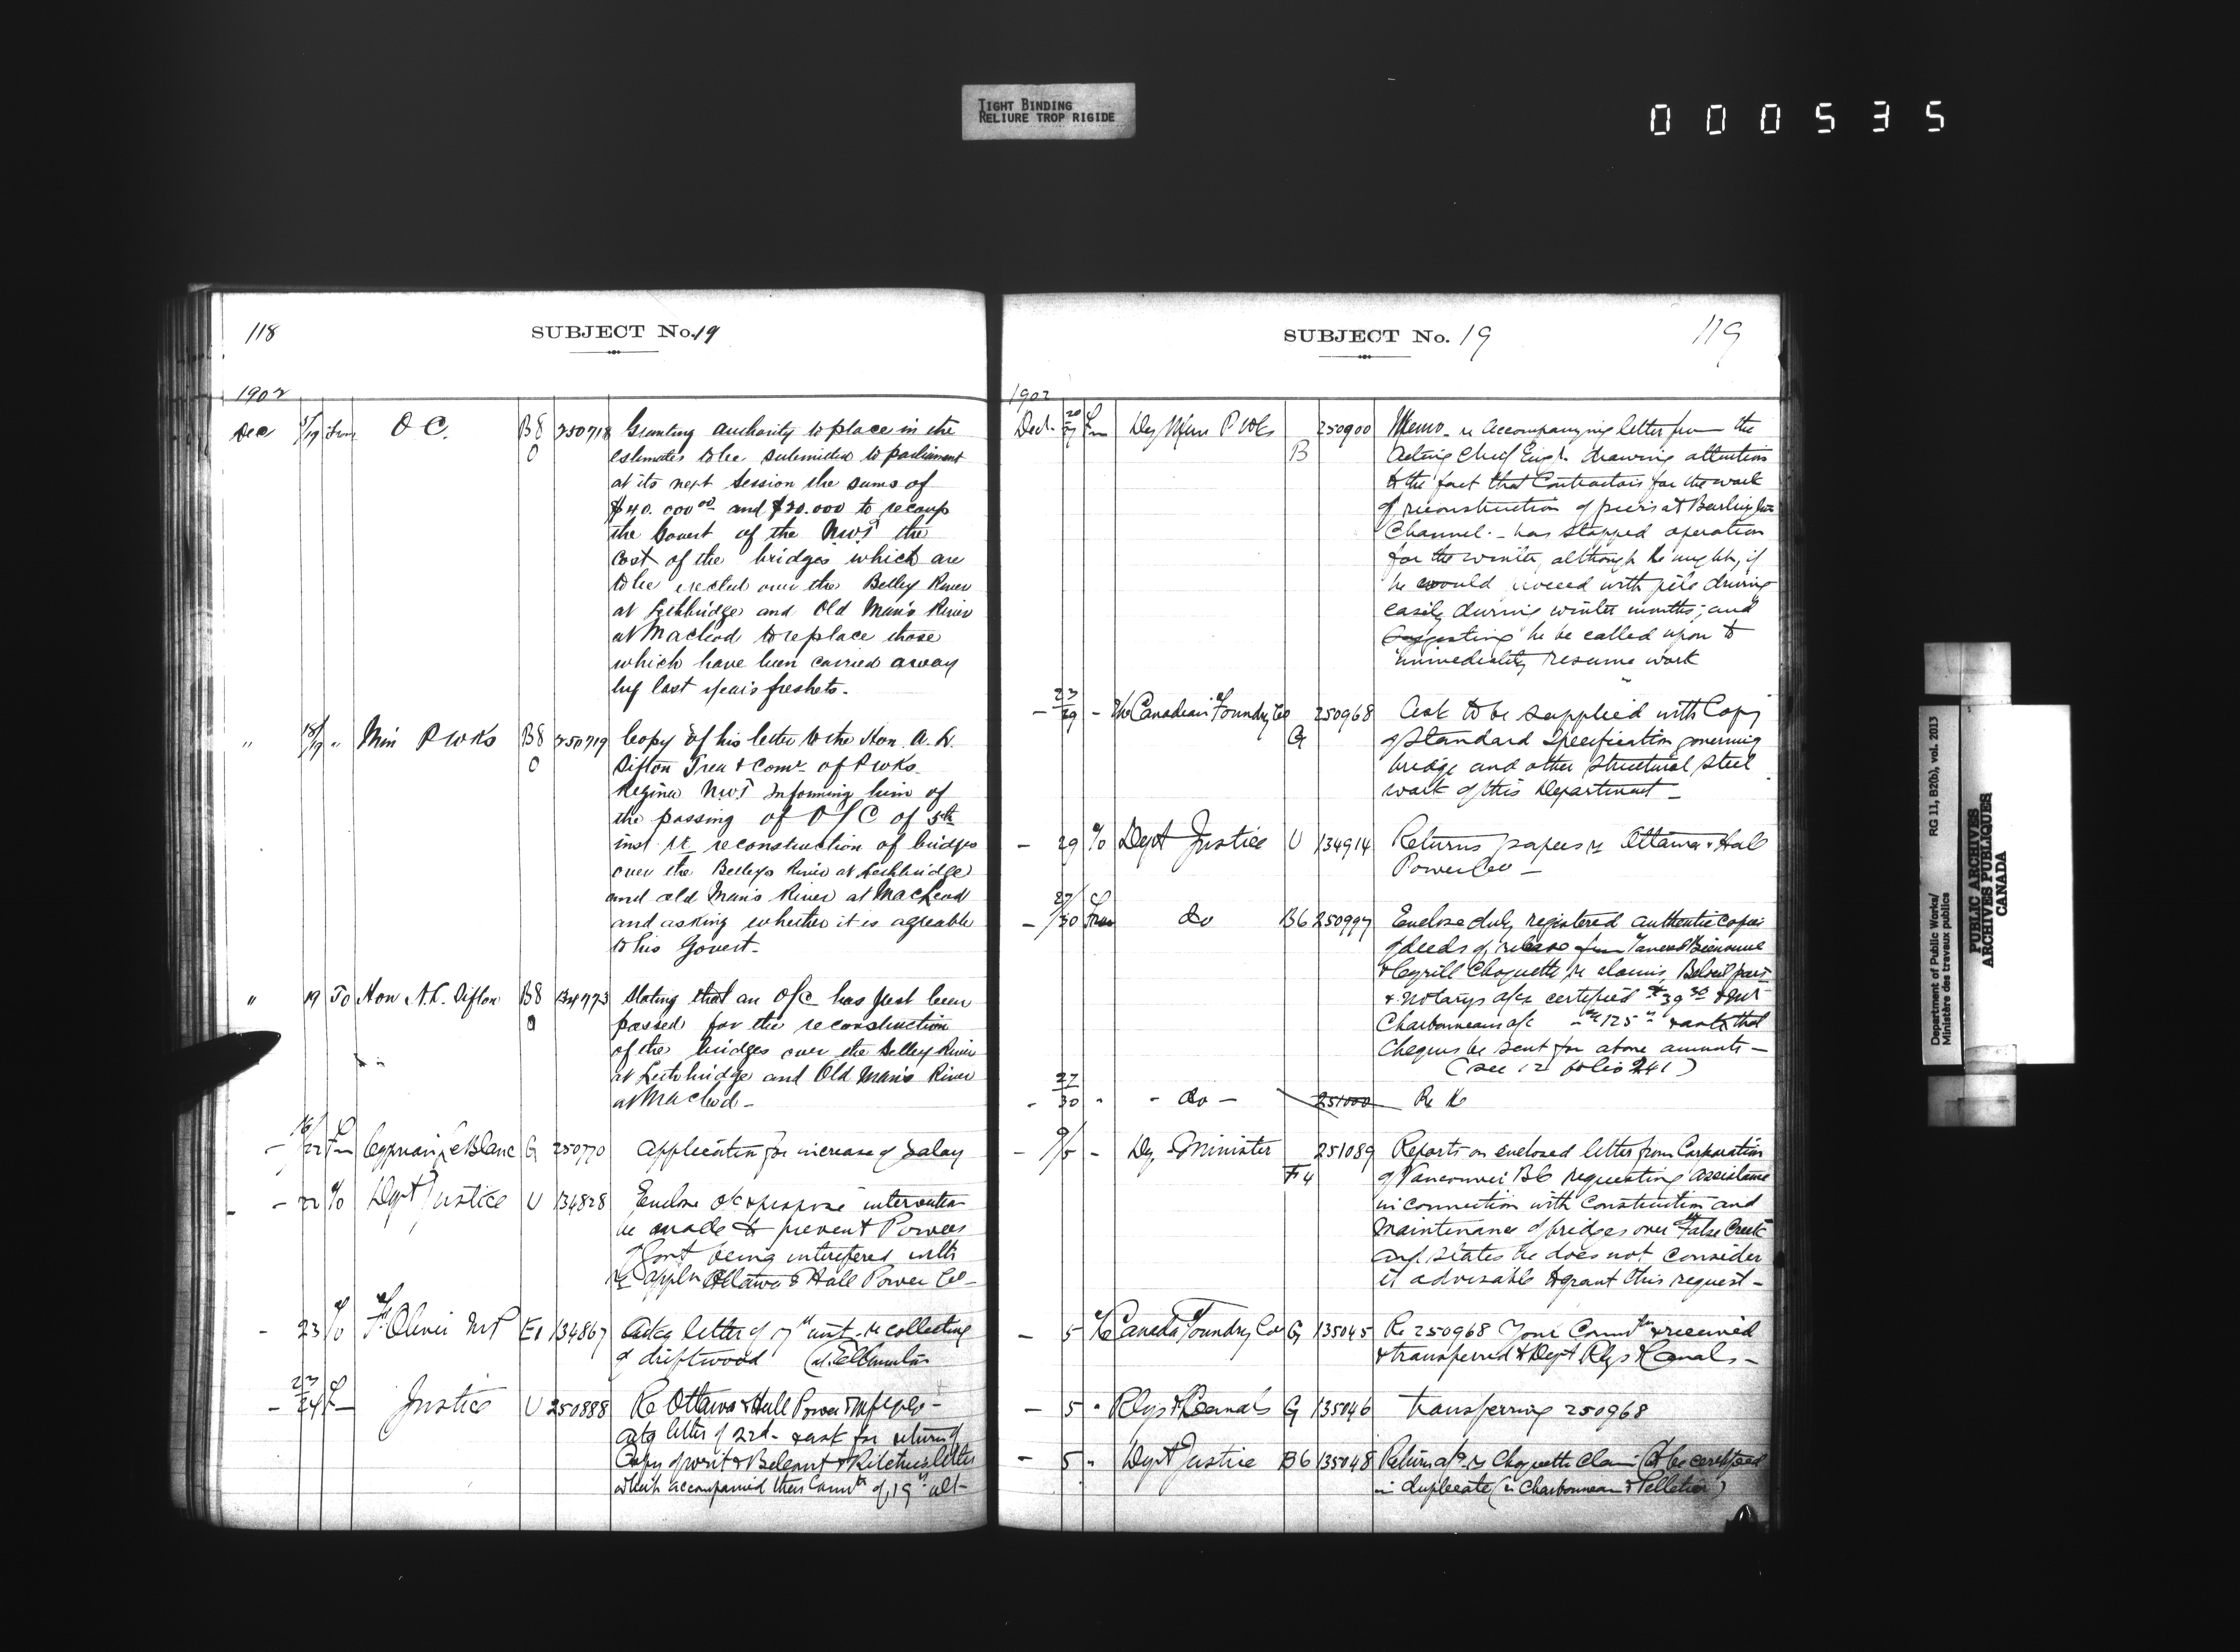 TIGHT BINDING
RELIURE TROP RIGIDE
000535
118
SUBJECT No. 19
1902
Dec 5/19 From O C. B8 O 250718 Granting authority to place in the
estimates to be submitted to parliament
at its next session the sums of
$40.000 00 and $20.000 to recoup
the Govert of the NWT the
cost of the bridges which are
to be erected over the Belley River
at Lethbridge and Old Man's River
at Macleod to replace those
which have been carried away
by last year's freshets.
" 18/19 " Min P Wks B8 O 250719 Copy of his letter to the Hon. A. L.
Sifton Trea & Comr of P Wks.
Regina NWT Informing him of
the passing of O/C of 5th
inst re reconstruction of bridges
over the Belleys River at Lethbridge
and old Man's River at MacLeod
and asking whether it is agreable
to his Govert-
" 19 To Hon A.L. Sifton B8 O 134773 Stating that an O/C has just been
passed for the reconstruction
of the bridges over the Belley River
at Lethbridge and Old Man's River
at Macleod -
- 16/22 Fm Cyprian LeBlanc G 250770 Application for increase of Salary
- 22 To Dept Justice U 134828 Enclose O/C & propose intervention
be made to prevent Powers
of Govt being interfered with
re appln Ottawa & Hull Power Co -
- 23 To F. Oliver MP E1 134867 Ackg letter of inst re collecting
of driftwood (at Edmonton
- 23/24 F- Justice U 250888 Re Ottawa & Hull Power & Mfg Co -
ackg letter of 22d - & ask for return of
Copy of writ & Belcourt & Ritchies letter
which accompanied their Commn of 19th ult -
SUBJECT No. 19
119
1902
Dect. 20/27 Fm Dey Minr P Wks B 250900 Memo - re Accompanying letter from the
Acting Chief Engr. drawing attention
to the fact that Contractors for the work
of reconstruction of piers at Burlington
Channel - has stopped operation
for the winter, although he might, if
he would proceed with pile driving
easily during winter months; and
suggesting he be called upon to
immediately resume work
- 23/29 - The Canadian Foundry Co G 250968 Ask to be supplied with Copy
of Standard Specification governing
bridge and other structural steel
work of this Department -
- 29 To Dept Justice U 134914 Returns papers re Ottawa & Hull
Power Co -
- 27/30 From do B6 250997 Enclose duly registered authentic copies
of deeds of release from Bienvenue
& Cyrill Choquette re claims Beloeil
& Notarys a/cs certified $39 30
Charbonneau's a/c $125 & asks that
Cheques be sent for above amounts -
(see 12 folio 241)
- 27/30 " - do - 251000 Re
- 9/5 - Dy Minister F4 251089 Reports on enclosed letter from Corporation
of Vancouver BC requesting assistance
in connection with Construction and
Maintenance of bridges over False Creek
and states he does not consider
it advisable to grant this request -
- 5 To Canada Foundry Co G 135045 Re 250968 Your Commn received
& transferred to Dept Rlys & Canals -
- 5 " Rlys & Canals G 135046 Transferring 250968
- 5 " Dept Justice B6 135048 Return a/c re Choquette Claim (to be certified
in duplicate (re Charbonneau & Pelletier)
Department of Public Works/
Ministère des travaux publics
RG 11, B2(b), vol. 2013
PUBLIC ARCHIVES
ARCHIVES PUBLIQUES
CANADA